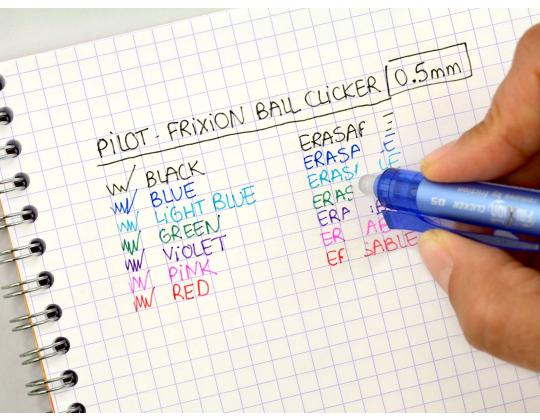 PILOT - FRIXION BALL CLICKER 0.5mm
BLACK
BLUE
LIGHT BLUE
GREEN
VIOLET
PINK
RED
ERASAF E
ERASA LE
ERAS LE
ERAS
ERA LE
ER AB
ER SABLE
CLICKER 05